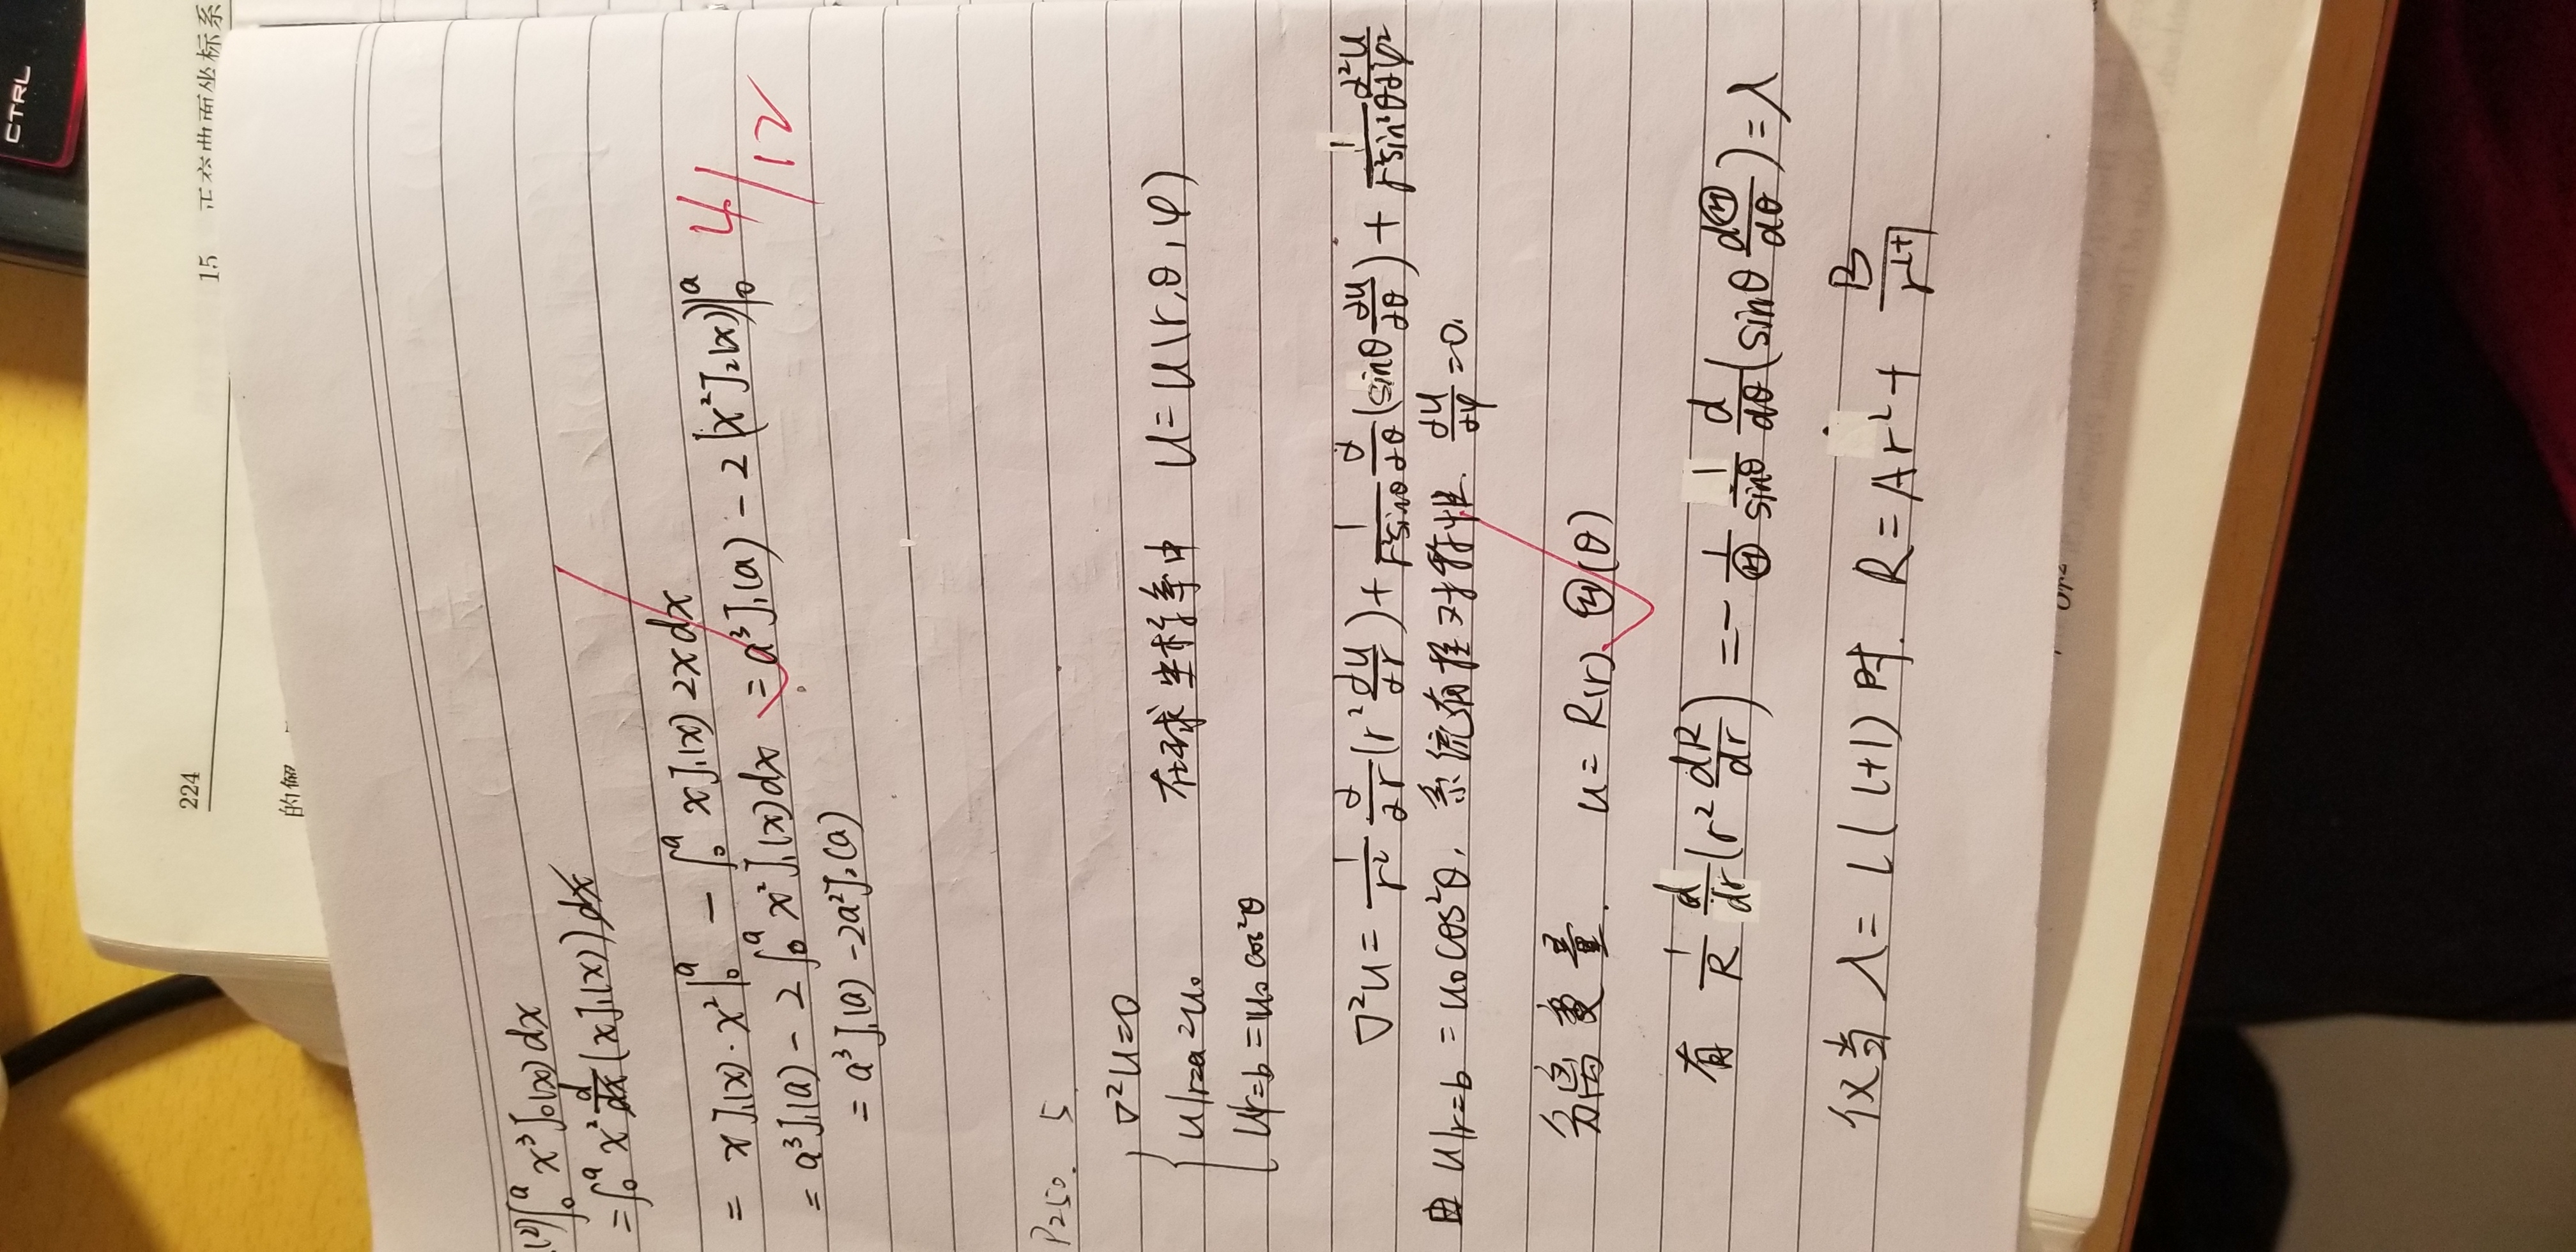 CTRL
224
15 正交曲面坐标系
的解
(2) ∫₀ᵃ x³ J₀(x) dx
= ∫₀ᵃ x² d/dx (x J₁(x)) dx
= x J₁(x) · x² |₀ᵃ − ∫₀ᵃ x J₁(x) 2x dx
= a³ J₁(a) − 2 ∫₀ᵃ x² J₁(x) dx = a³ J₁(a) − 2 (x² J₂(x)) |₀ᵃ
4/12
= a³ J₁(a) − 2a² J₂(a)
P250. 5.
∇²u=0
u|r=a = u₀
在球坐标系中 u = u(r, θ, φ)
u|r=b = u₀ cos²θ
∇²u = 1/r² ∂/∂r (r² ∂u/∂r) + 1/(r² sinθ) ∂/∂θ (sinθ ∂u/∂θ) + 1/(r² sin²θ) ∂²u/∂φ²
由 u|r=b = u₀ cos²θ, 系统有轴对称性. ∂u/∂φ = 0.
分离变量. u = R(r) Θ(θ)
有 1/R d/dr (r² dR/dr) = − 1/Θ 1/sinθ d/dθ (sinθ dΘ/dθ) = λ
仅当 λ = l(l+1) 时. R = Ar^l + B/r^(l+1)
∂r²